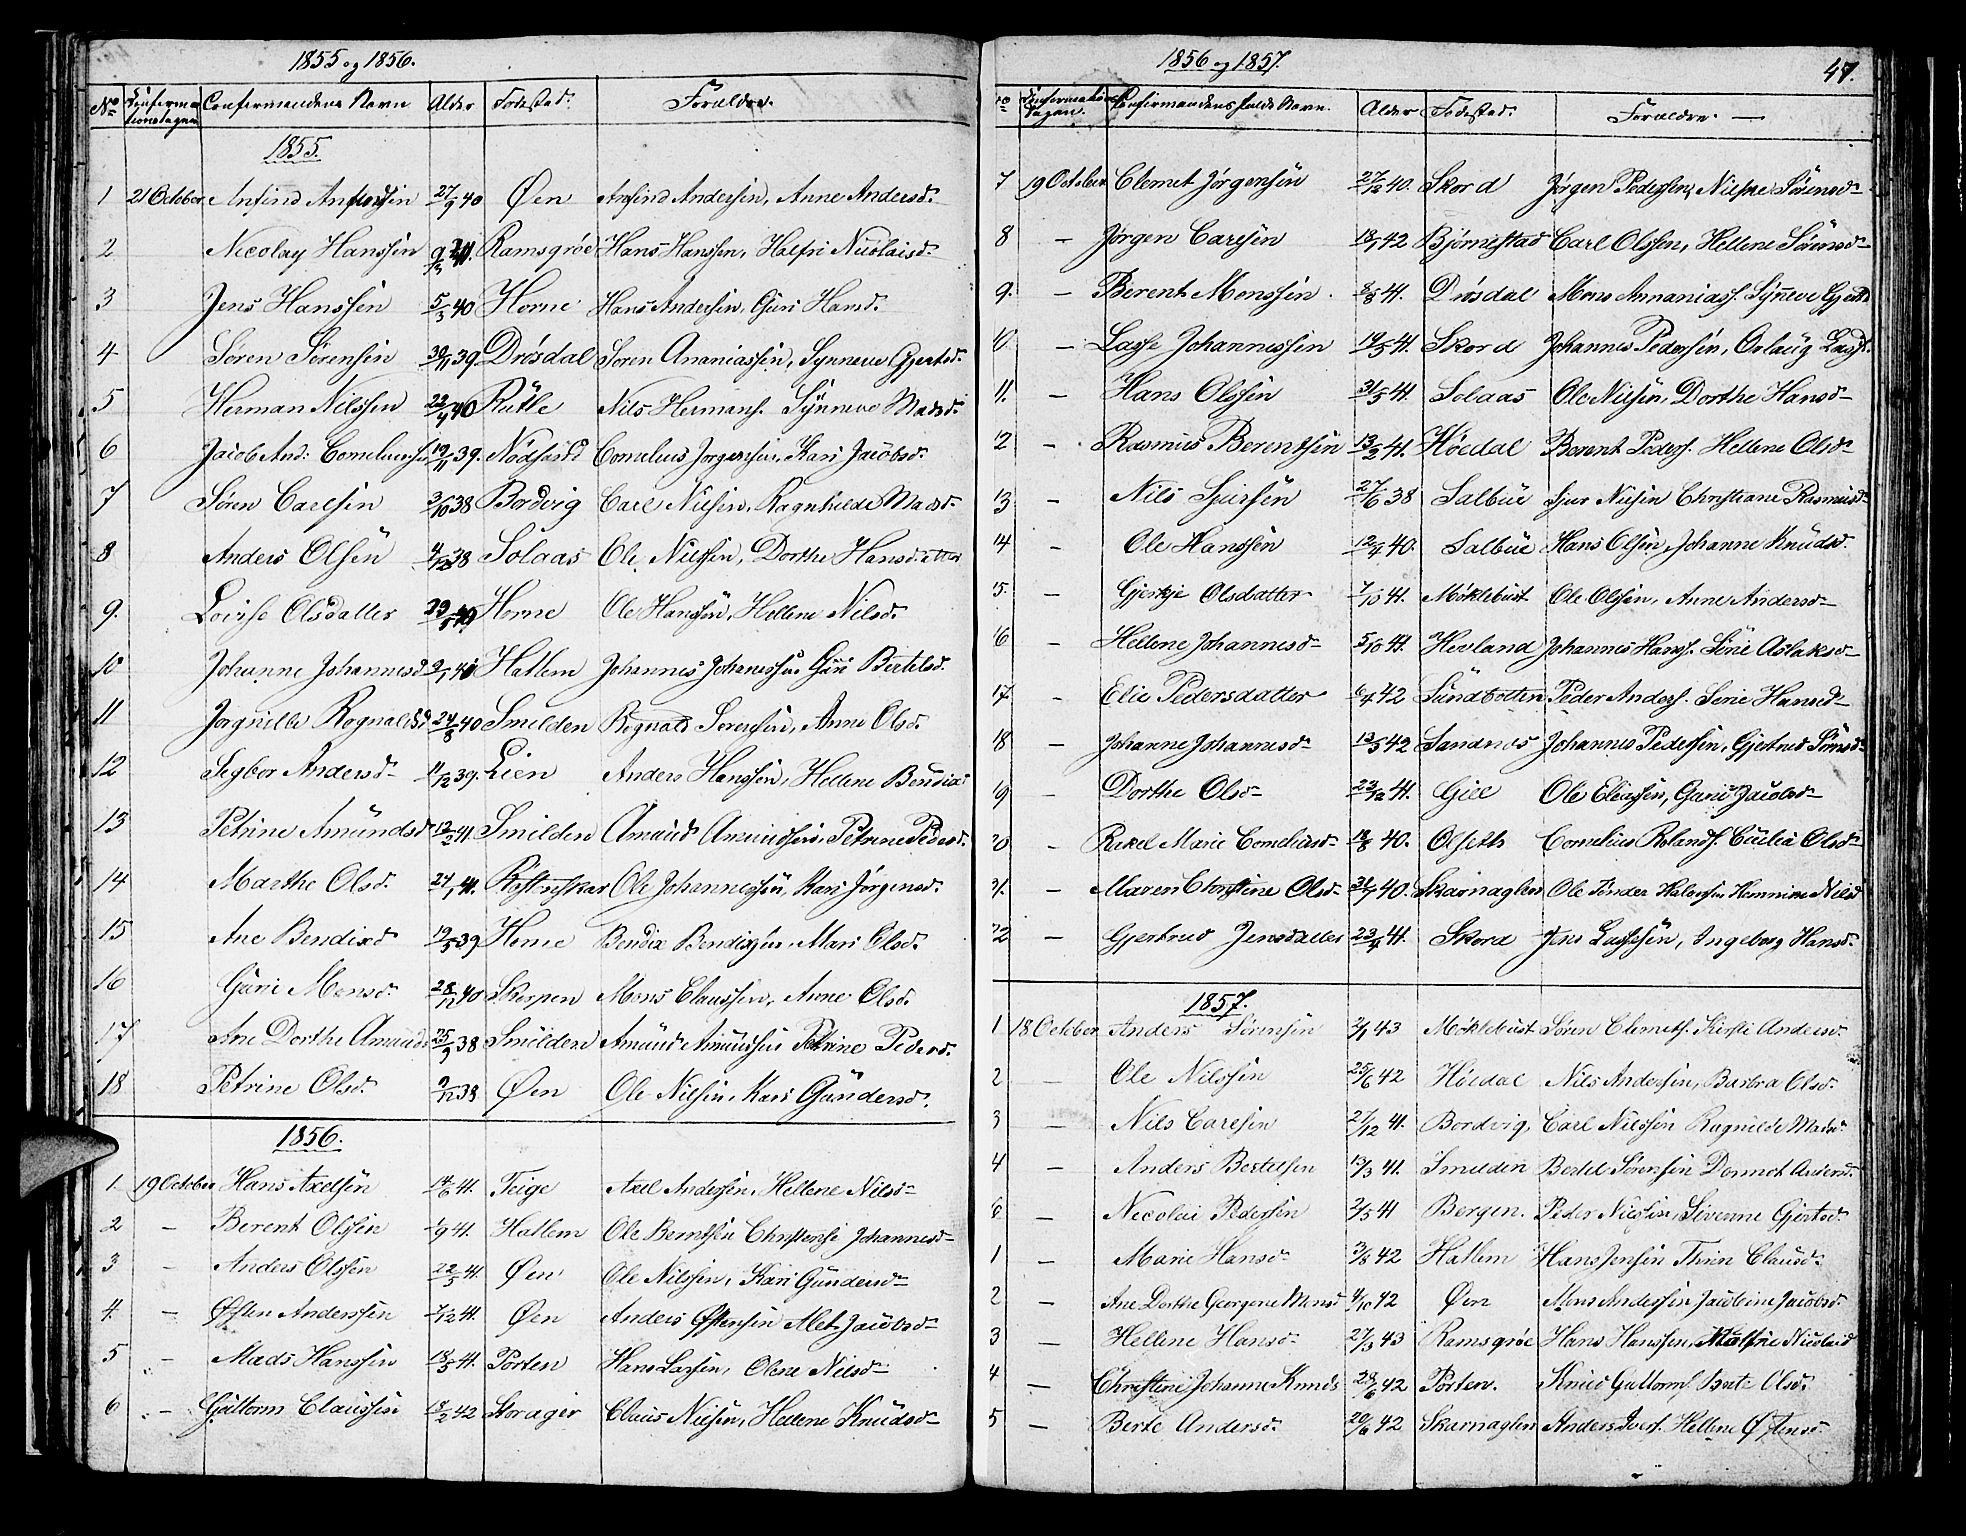 1855 og 1856.
No Confirmationsdagen Confirmandens Navn Alder Fødested. Forældre.
1855.
1 21 October Anfind Anfindsen 27/9 40 Øen Anfind Andersen, Anne Andersd.
2 Nicolay Hanssen 9/3 41. Ramsgrøe Hans Hanssen, Halfri Nicolaisd.
3 Jens Hanssen 5/3 40 Horne Hans Andersen, Guri Hansd.
4 Søren Sørensen 30/11 39. Drøsdal Søren Ananiassen, Synneve Gjertsd.
5 Herman Nilssen 22/9 40 Rutle Nils Hermans. Synneve Madsd.
6 Jacob And: Corneliussen 19/11 39. Nødseth Cornelius Jørgensen, Kari Jacobsd.
7 Søren Carlsen 3/10 38 Bordvig Carl Nilsen, Ragnhilde Madsd.
8 Anders Olsen 4/12 38 Solaas Ole Nilssen, Dorthe Hansdatter
9. Lovise Olsdatter 29/5 40 Horne Ole Hanssen, Hellene Nilsd.
10 Johanne Johannesd 2/1 40 Hatlem Johannes Johannessen Guri Bertelsd.
11 Jorgnille Rognaldsd 24/8 40 Smilden Rognald Sørensen, Anne Olsd.
12 Segbor Andersd. 11/12 39. Lien Anders Hanssen, Hellene Bendixd
13 Petrine Amundsd 12/2 41. Smilden Amund Amundsen, Petrine Pedersd.
14 Marthe Olsd. 24/1 41. Ole Johannessen, Kari Jørgensd.
15 Ane Bendixd 19/5 39 Horne Bendix Bendixsen, Mari Olsd.
16 Gurie Monsd. 28/12 40 Skorpen Mons Claussen, Anne Olsd.
17 Ane Dorthe Amunds 25/9 38 Smilden Amund Amundsen Petrine Pedersd.
18 Petrine Olsd. 9/12 38 Øen Ole Nilsen, Kari Gundersd.
1856.
1. 19 October Hans Axelsen 14/6 41. Teige Axel Andersen, Hellene Nilsd.
2 – Berent Olssen 1/9 41. Hatlem Ole Berntsen Christense Johannesd.
3 – Anders Olssen 22/5 41. Øen Ole Nilssen, Kari Gundersd.
4. – Østen Anderssen 7/12 41. Øen Anders Østensen Alet Jacobsd.
5 – Mads Hanssen 18/5 41. Porten Hans Larsen, Olena Nilsd.
6 – Guttorm Claussen 18/2 42 Storager Claus Nilsen, Hellene Knudsd.
1856 og 1857.
47.
No Confirmationsdagen. Confirmandens fulde Navn. Alder Fødested. Forældre.
7 19 October Clemet Jørgensen 27/12 40. Skord Jørgen Pedersen, Nilsine Sørensd.
8 – Jørgen Carlsen 18/1 42 Bjørnestad Carl Olssen, Hellene Sørensd.
9. – Berent Monssen 8/8 41. Drøsdal Mons Annaniass. Synneve Gjertsd
10. – Lasse Johannessen 19/5 41. Skord Johannes Pedersen, Orlaug Lassd.
11. – Hans Olssen 31/5 41. Solaas Ole Nilsen, Dorthe Hansd.
12 – Rasmus Berentsen 13/2 41. Høedal Berent Peders. Hellene Olsd.
13 – Nils Sjursen 27/6 38 Salbue Sjur Nilsen Christiane Rasmusd.
14 – Ole Hanssen 12/4 40. Salbue Hans Olsen, Johanne Knudsd.
15. – Gjertje Olsdatter 7/10 41. Møklebust Ole Olssen, Anne Andersd.
16 – Hellene Johannesd. 5/10 41. Hevland Johannes Hanss. Sønie Aslaksd.
17. – Elie Pedersdatter 6/4 42 Sundbotten Peder Anders. Serie Hansd.
18 – Johanne Johannesd. 13/5 42 Sandnes Johannes Pedersen, Gjertrud Simsd.
19 – Dorthe Olsd. 23/12 41. Giel Ole Eliassen, Guri Jacobsd.
20 – Rakel Marie Corneliusd. 18/8 40. Olseth Cornelius Rolands. Cicilia Olsd.
21. – Maren Christine Olsd. 31/7 40. Skarnaglen Ole Tønder Halversen Hemmine Nilsd
22 – Gjertrud Jensdatter 23/9 41. Skord Jens Lassesen, Ingeborg Hansd.
1857.
1 18 October Anders Sørensen 2/1 43 Møklebust Søren Clemets. Kirsti Andersd.
2 – Ole Nilssen 25/6 42 Høedal Nils Andersen, Barbra Olsd.
3 – Nils Carlsen 27/12 41. Bordvig, Carl Nilssen Ragnilde Madsd.
4 – Anders Bertelsen 13/3 41. Smilden Bertel Sørenssen Donnet Andersd.
6 – Nicolai Pedersen 2/5 41 Bergen. Peder Nilssen, Siverine Gjertsd.
1 – Marie Hansd. 3/8 42 Hatlem Hans Jensen Thrin Clausd.
2 – Ane Dorthe Georgine Monsd 4/10 42 Øen Mons Andersen Jacobine Jacobsd.
3 – Hellene Hansd. 27/3 43 Ramsgrøe Hans Hanssen, Nicolaisd
4 – Christine Johanne Knuds 28/6 42 Porten. Knud Guttorms. Berte Olsd.
5 – Berte Andersd. 20/6 42 Skarnaglen Anders Ivers. Hellene Østensd.